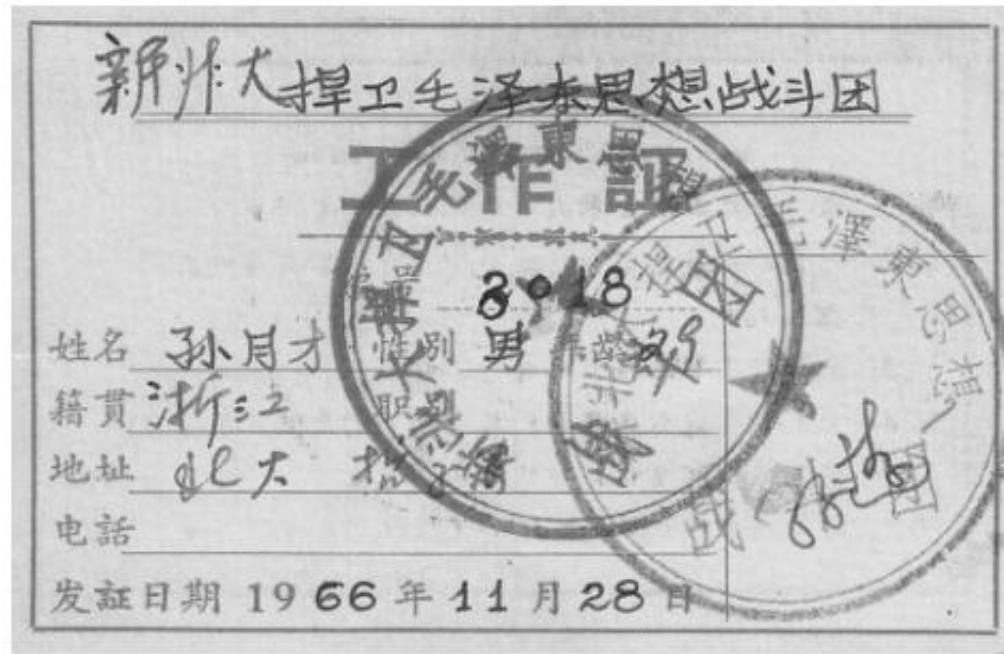 新北大捍卫毛泽东思想战斗团
工作証
编号 3018
姓名 孙月才 性别 男 年龄 29
籍貫 浙江 职别
地址 北大
电話
发証日期 1966年11月28日
毛澤東思想
捍卫毛澤東思想战团